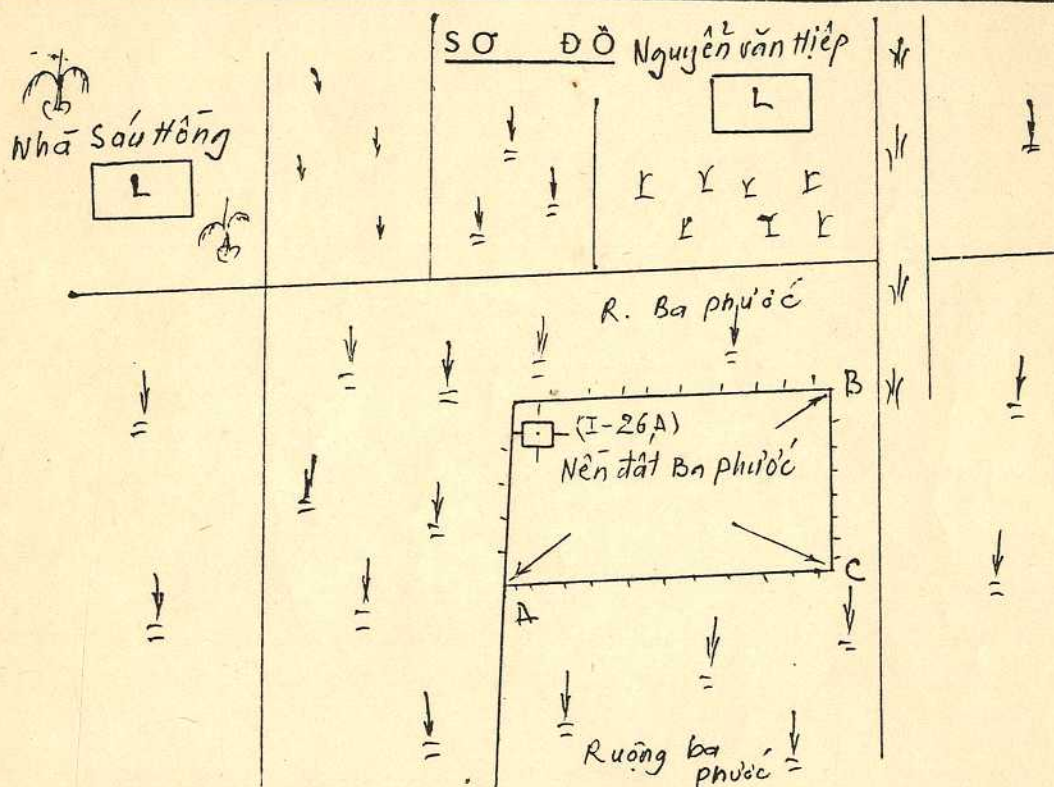 SƠ ĐỒ
Nguyễn văn Hiệp
L
Nhà Sáu Hồng
L
R. Ba phước
B
(I-26A)
Nền đất Ba phước
C
A
Ruộng ba
phước